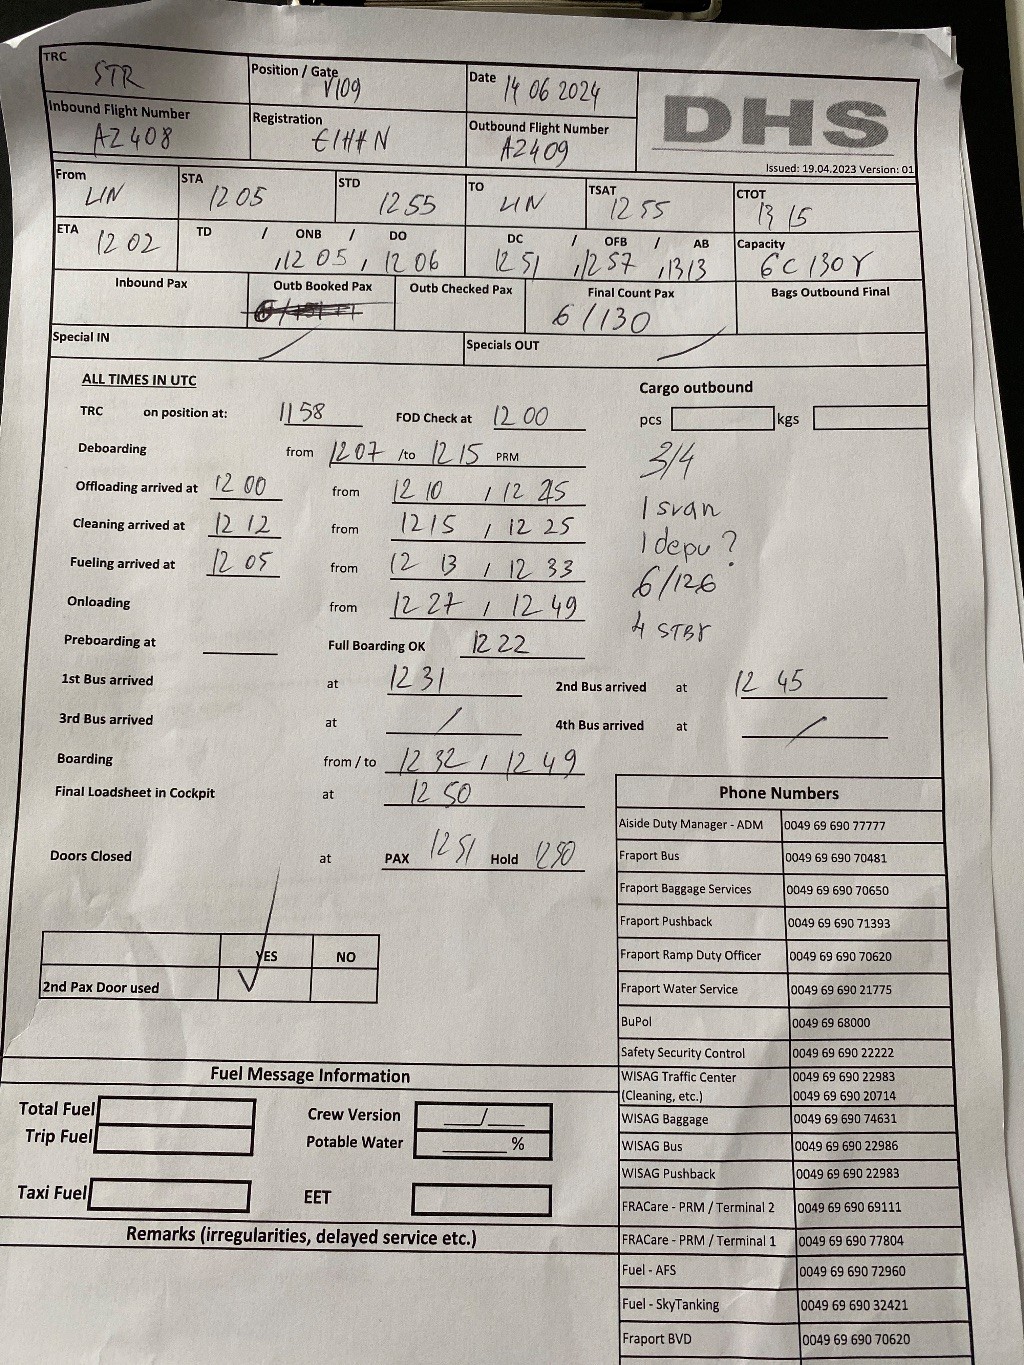 TRC STR Position / Gate V109 Date 14 06 2024 DHS
Inbound Flight Number AZ408 Registration EIHHN Outbound Flight Number AZ409
Issued: 19.04.2023 Version: 01
From LIN STA 12 05 STD 12 55 TO LIN TSAT 12 55 CTOT 13 15
ETA 12 02 TD / ONB / DO , 12 05 , 12 06 DC / OFB / AB 12 51 , 12 57 , 13 13 Capacity 6C 130Y
Inbound Pax Outb Booked Pax Outb Checked Pax Final Count Pax 6/130 Bags Outbound Final
Special IN / Specials OUT /
ALL TIMES IN UTC Cargo outbound
TRC on position at: 11 58 FOD Check at 12 00 pcs kgs
Deboarding from 12 07 /to 12 15 PRM 3/4
Offloading arrived at 12 00 from 12 10 , 12 25
1 svan
Cleaning arrived at 12 12 from 12 15 , 12 25
1 depu ?
Fueling arrived at 12 05 from 12 13 , 12 33 6/126
Onloading from 12 27 , 12 49
4 STBY
Preboarding at Full Boarding OK 12 22
1st Bus arrived at 12 31 2nd Bus arrived at 12 45
3rd Bus arrived at / 4th Bus arrived at /
Boarding from / to 12 32 , 12 49
Final Loadsheet in Cockpit at 12 50
Doors Closed at PAX 12 51 Hold 12 50
YES NO
2nd Pax Door used ✓
Phone Numbers
Aiside Duty Manager - ADM 0049 69 690 77777
Fraport Bus 0049 69 690 70481
Fraport Baggage Services 0049 69 690 70650
Fraport Pushback 0049 69 690 71393
Fraport Ramp Duty Officer 0049 69 690 70620
Fraport Water Service 0049 69 690 21775
BuPol 0049 69 68000
Safety Security Control 0049 69 690 22222
WISAG Traffic Center 0049 69 690 22983
(Cleaning, etc.) 0049 69 690 20714
WISAG Baggage 0049 69 690 74631
WISAG Bus 0049 69 690 22986
WISAG Pushback 0049 69 690 22983
FRACare - PRM / Terminal 2 0049 69 690 69111
FRACare - PRM / Terminal 1 0049 69 690 77804
Fuel - AFS 0049 69 690 72960
Fuel - SkyTanking 0049 69 690 32421
Fraport BVD 0049 69 690 70620
Fuel Message Information
Total Fuel Crew Version /
Trip Fuel Potable Water %
Taxi Fuel EET
Remarks (irregularities, delayed service etc.)